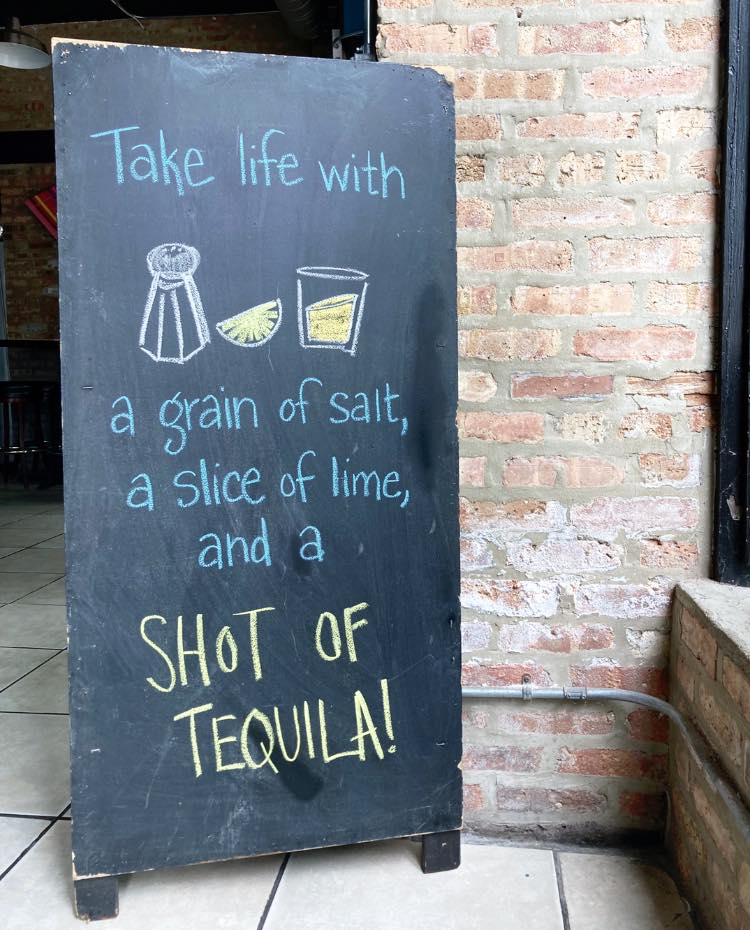 Take life with
a grain of salt,
a slice of lime,
and a
SHOT OF
TEQUILA!